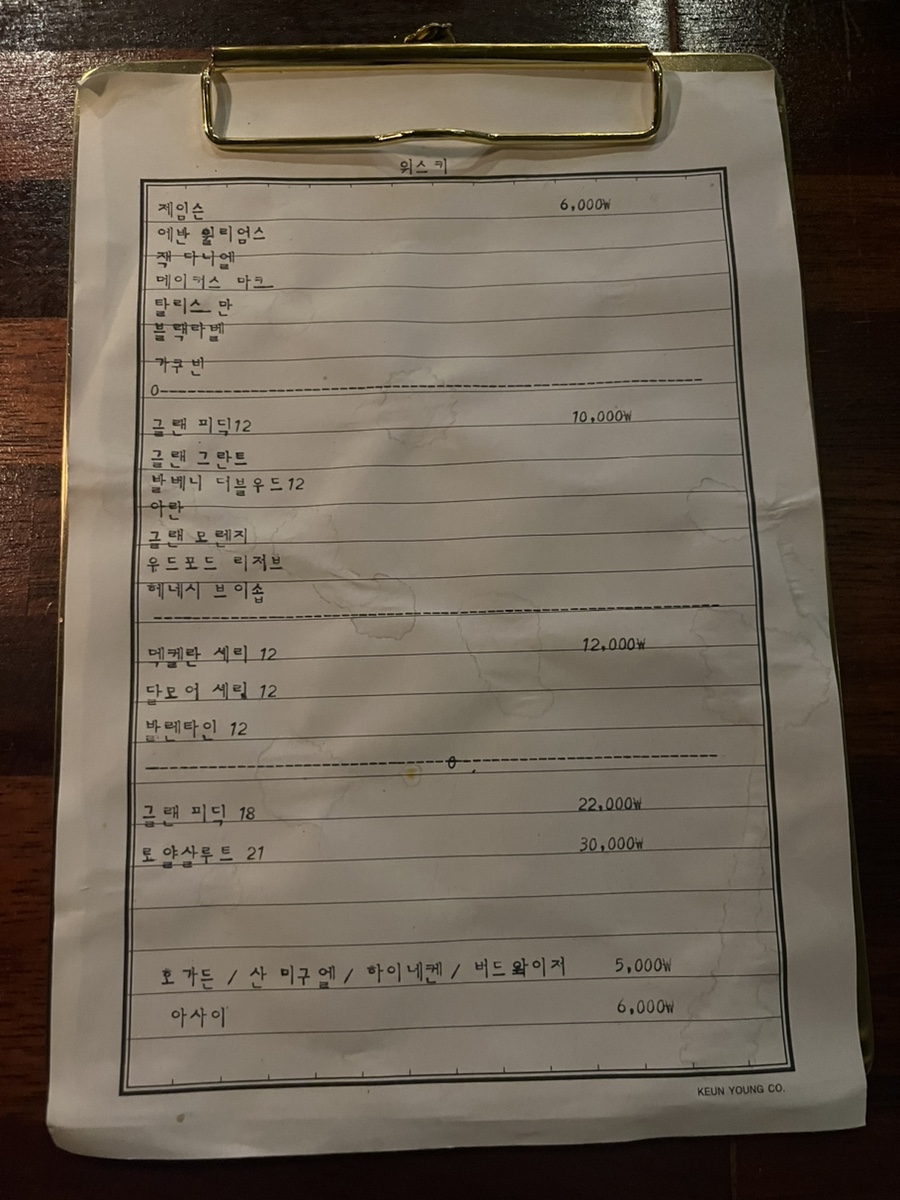 위스키
제임슨 6,000₩
에반 윌리엄스
잭 다니엘
메이커스 마크
탈리스 만
블랙라벨
가쿠빈
0------------------------------------------------------------
글랜 피딕12 10,000₩
글랜 그란트
발베니 더블우드12
아란
글랜 모렌지
우드포드 리저브
헤네시 브이솝
------------------------------------------------------------
멕켈란 세리 12 12,000₩
달모어 세리 12
발렌타인 12
--------------------------------0-----------------------------
글랜 피딕 18 22,000₩
로얄살루트 21 30,000₩
호가든 / 산 미구엘 / 하이네켄 / 버드와이저 5,000₩
아사이 6,000₩
KEUN YOUNG CO.